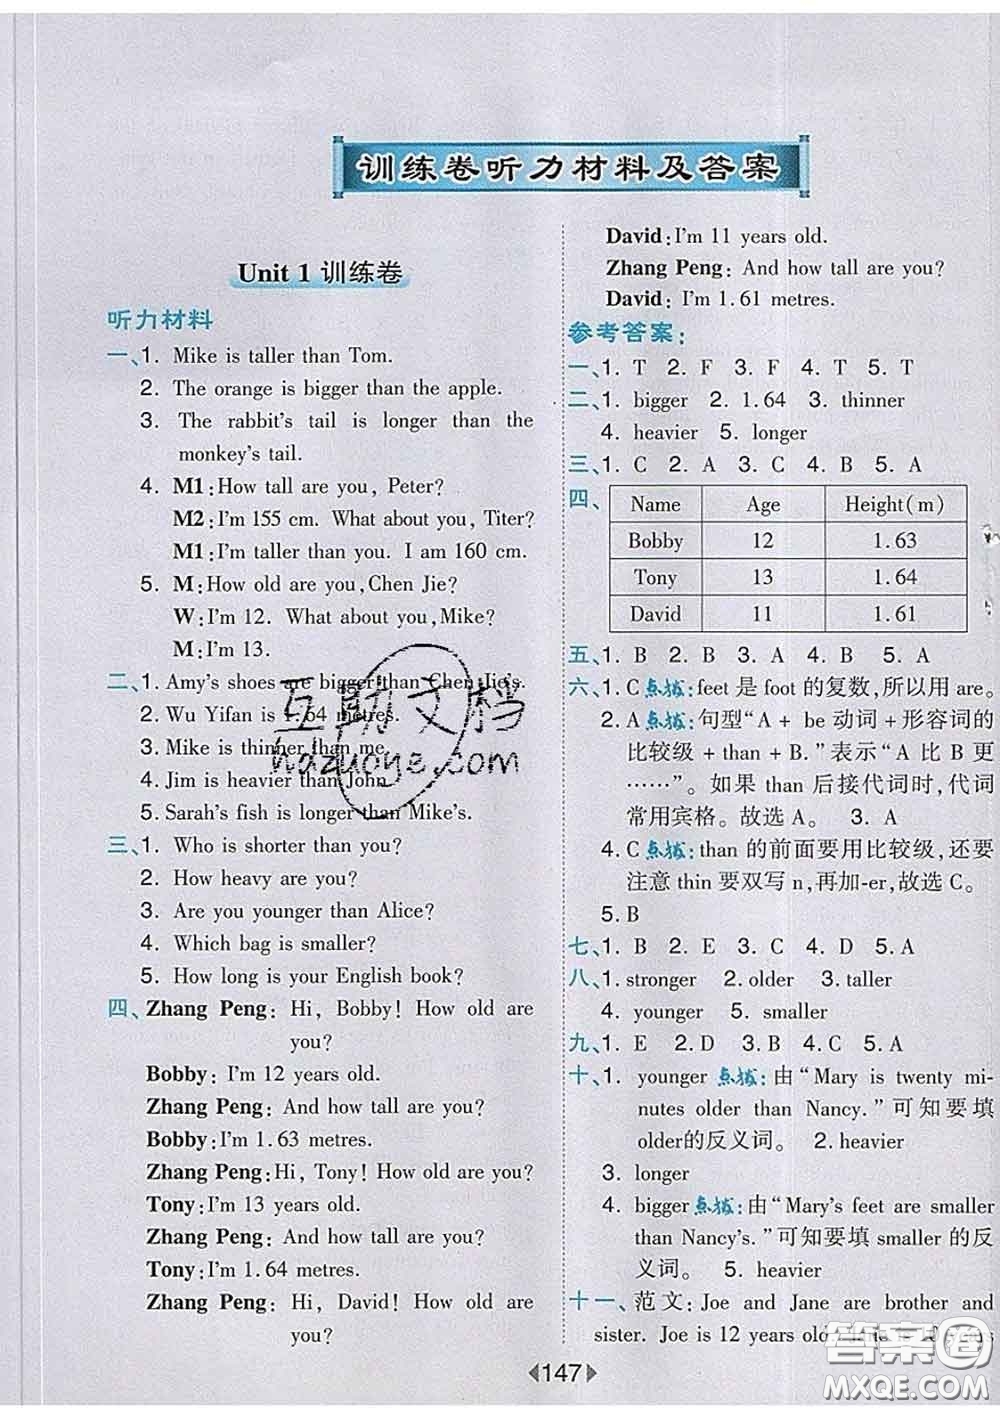 训练卷听力材料及答案
Unit 1 训练卷
听力材料
一、1. Mike is taller than Tom.
2. The orange is bigger than the apple.
3. The rabbit's tail is longer than the
monkey's tail.
4. M1:How tall are you, Peter?
M2:I'm 155 cm. What about you, Titer?
M1:I'm taller than you. I am 160 cm.
5. M:How old are you,Chen Jie?
W:I'm 12. What about you,Mike?
M:I'm 13.
二、1. Amy's shoes are bigger than Chen Jie's.
2. Wu Yifan is 1.64 metres.
3. Mike is thinner than me.
4. Jim is heavier than John.
5. Sarah's fish is longer than Mike's.
三、1. Who is shorter than you?
2. How heavy are you?
3. Are you younger than Alice?
4. Which bag is smaller?
5. How long is your English book?
四、Zhang Peng: Hi, Bobby! How old are
you?
Bobby:I'm 12 years old.
Zhang Peng: And how tall are you?
Bobby:I'm 1.63 metres.
Zhang Peng:Hi, Tony! How old are you?
Tony:I'm 13 years old.
Zhang Peng: And how tall are you?
Tony:I'm 1.64 metres.
Zhang Peng: Hi, David! How old are
you?
David:I'm 11 years old.
Zhang Peng: And how tall are you?
David: I'm 1.61 metres.
参考答案:
一、1. T 2. F 3. F 4. T 5. T
二、1. bigger 2. 1.64 3. thinner
4. heavier 5. longer
三、1. C 2. A 3. C 4. B 5. A
四、
Name Age Height(m)
Bobby 12 1.63
Tony 13 1.64
David 11 1.61
五、1. B 2. B 3. A 4. B 5. A
六、1. C点拨:feet 是 foot 的复数,所以用 are。
2. A点拨:句型“A + be 动词+形容词的
比较级 + than + B.”表示“A 比 B 更
……”。如果 than 后接代词时,代词
常用宾格。故选 A。 3. A
4. C点拨:than 的前面要用比较级,还要
注意 thin 要双写 n,再加-er,故选 C。
5. B
七、1. B 2. E 3. C 4. D 5. A
八、1. stronger 2. older 3. taller
4. younger 5. smaller
九、1. E 2. D 3. B 4. C 5. A
十、1. younger 点拨:由“Mary is twenty mi-
nutes older than Nancy.”可知要填
older的反义词。 2. heavier
3. longer
4. bigger点拨:由“Mary's feet are smaller
than Nancy's.”可知要填 smaller 的反
义词。 5. heavier
十一、范文:Joe and Jane are brother and
sister. Joe is 12 years old. Jane is 10 years
147
互助文档
hdzuoye.com
答案圈
MXQE.COM